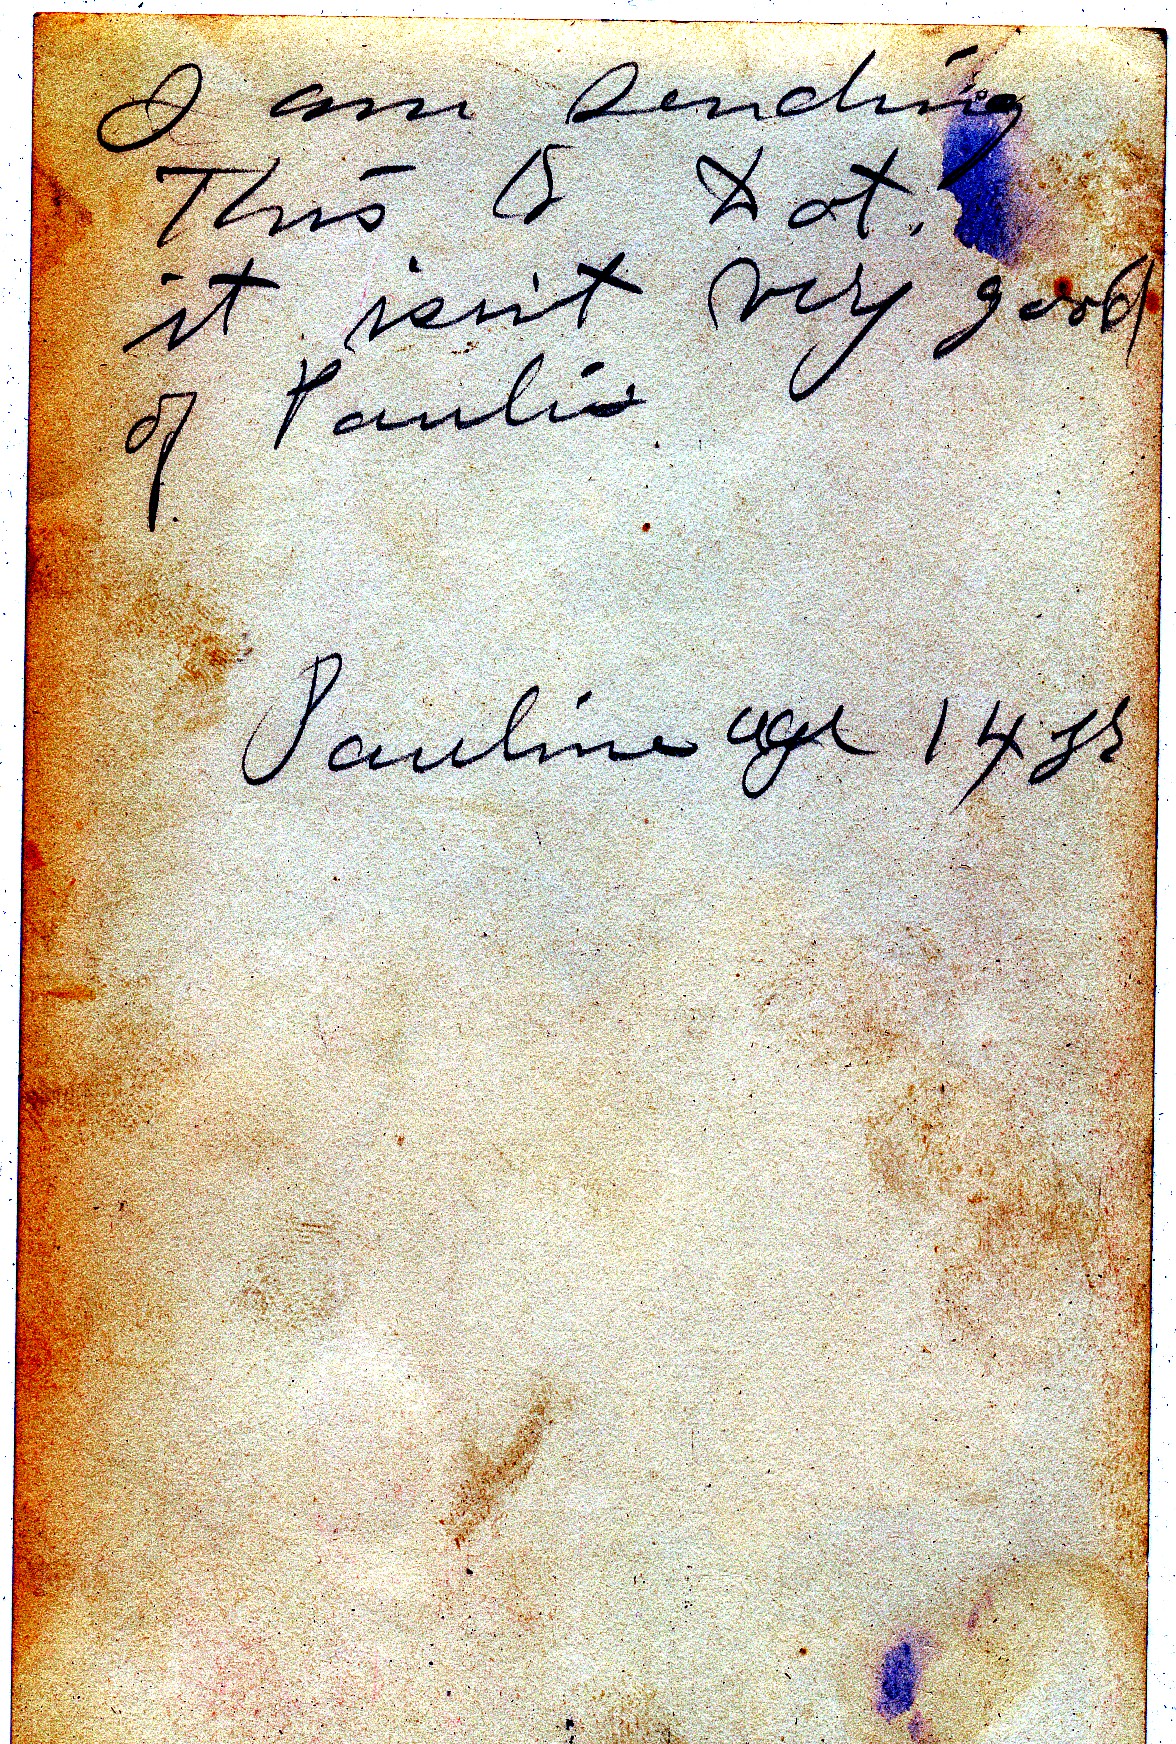 I am sending
This to Dot.
it isn't very good
of Paulin
Pauline age 14 yr